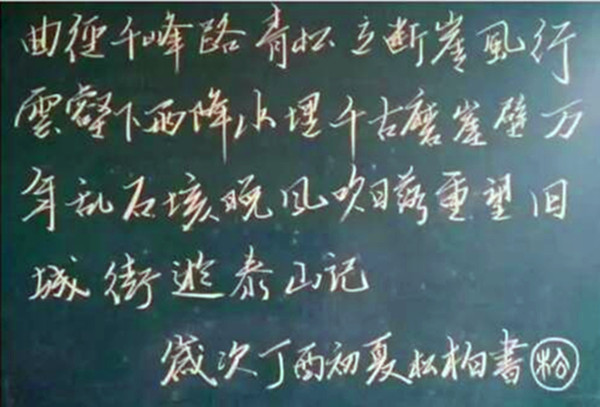 曲徑千峰路青松立断崖風行
雲壑下雨降水埋千古磨崖壁万
年乱石垓晚风吹日落重望旧
城街遊泰山记
岁次丁酉初夏松柏書